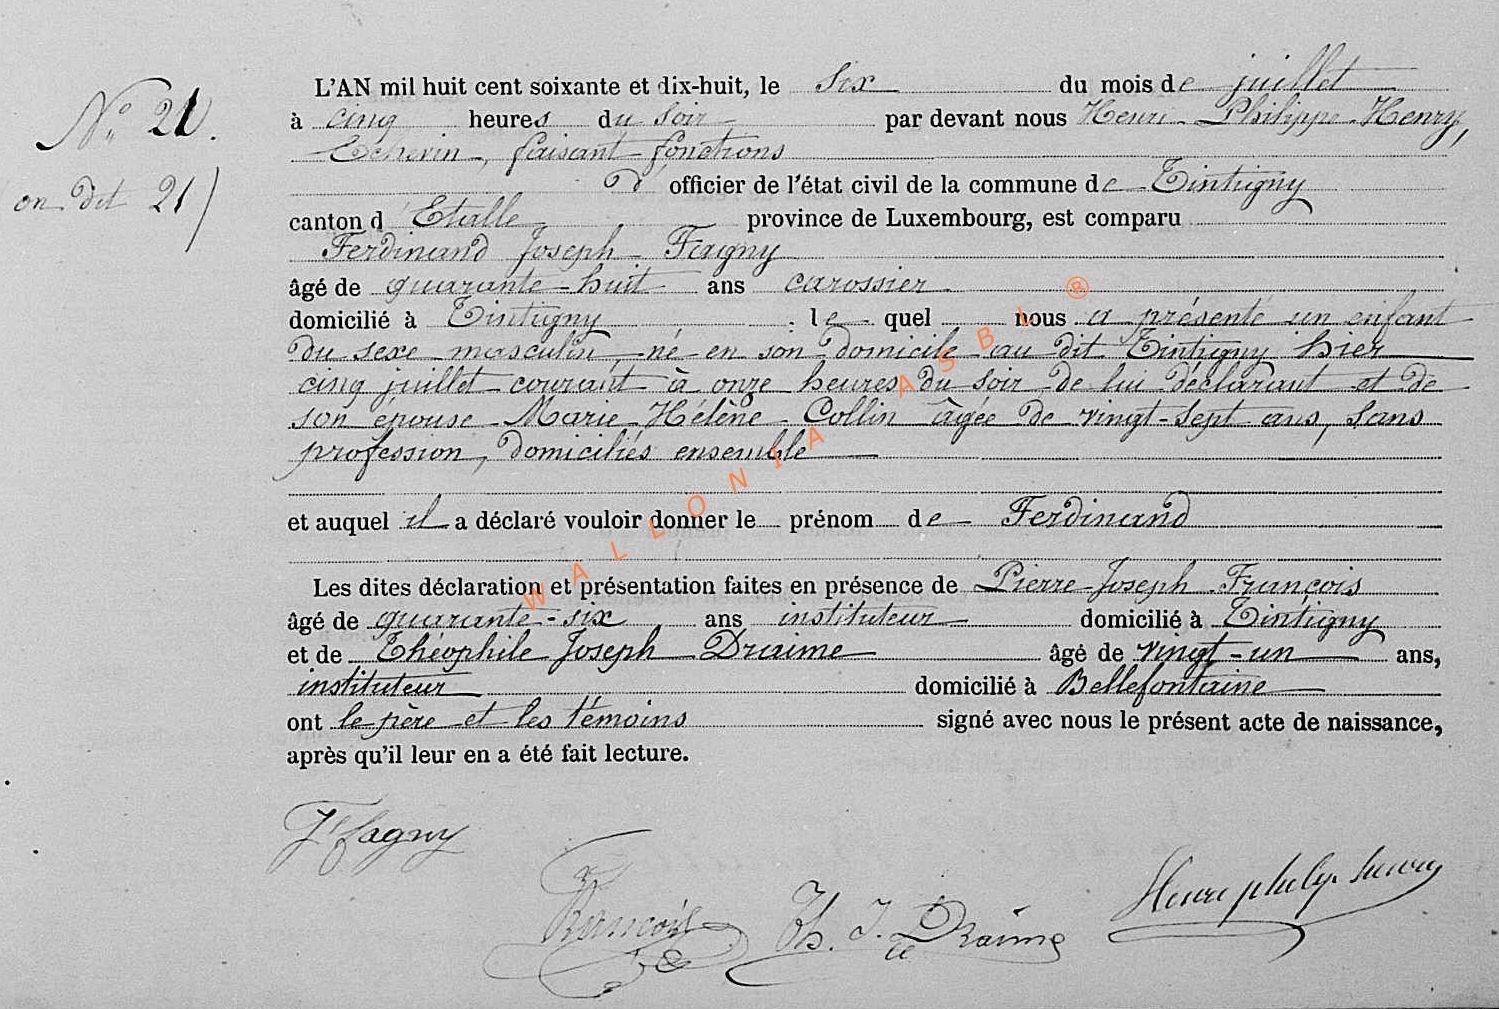 N° 21.
on dit 21)
L'AN mil huit cent soixante et dix-huit, le six du mois de juillet
à cinq heures du soir par devant nous Henri Philippe Henry,
Echevin, faisant fonctions
d' officier de l'état civil de la commune de Tintigny
canton d'Etalle province de Luxembourg, est comparu
Ferdinand Joseph Fagny
âgé de quarante-huit ans carossier
domicilié à Tintigny ; le quel nous a présenté un enfant
du sexe masculin, né en son domicile au dit Tintigny hier
cinq juillet courant à onze heures du soir de lui déclarant et de
son épouse Marie Hélène Collin âgée de vingt-sept ans, sans
profession, domiciliés ensemble
et auquel il a déclaré vouloir donner le prénom de Ferdinand
Les dites déclaration et présentation faites en présence de Pierre-Joseph François
âgé de quarante-six ans instituteur domicilié à Tintigny
et de Théophile Joseph Draime âgé de vingt-un ans,
instituteur domicilié à Bellefontaine
ont le père et les témoins signé avec nous le présent acte de naissance,
après qu'il leur en a été fait lecture.
Fagny
François
Th. J. Draime
Henri philip henry
WALLONIA ASBL ®